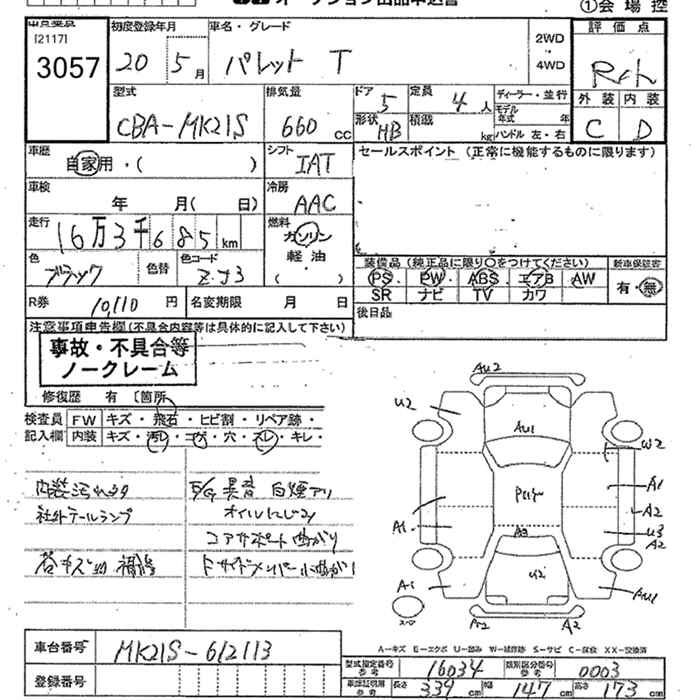 オークション出品申込書
①会場控
[2117]
3057
初度登録年月
20 5月
車名・グレード
パレット T
2WD
4WD
評価点
外装 内装
C D
型式
CBA-MK21S
排気量
660 cc
ドア
5
形状
HB
定員
4人
積載
kg
ディーラー・並行
モデル年式 年
ハンドル 左・右
車歴
自家用・( )
シフト
IAT
セールスポイント (正常に機能するものに限ります)
車検
年 月( 日)
冷房
AAC
走行
16万3千685km
燃料
ガソリン
軽油
( )
色
ブラック
色替
色コード
ZJ3
装備品 (純正品に限り○をつけてください)
PS PW ABS エアB AW
SR ナビ TV カワ
新車保証書
有・無
R券
10,110 円
名変期限 月 日
後日品
注意事項申告欄(不具合内容等は具体的に記入して下さい)
事故・不具合等
ノークレーム
修復歴 有 〔箇所
検査員
記入欄
FW キズ・飛石・ヒビ割・リペア跡・
内装 キズ・汚レ・コゲ・穴・スレ・キレ・
内装汚れ
社外テールランプ
E/G異音 白煙アリ
オイルにじみ
コアサポート曲がり
AU2
U2
AU1
W2
A1
A2
U3
A2
A1
A2
A1
U2
AU1
A2
A2
A-キズ E-エクボ U-凹み W-補修跡 S-サビ C-腐食 XX-交換済
車台番号
MK21S-612113
登録番号
型式指定番号
16034
類別区分番号
0003
車歴証明用
参考
長さ 339 cm 幅 147 cm 高さ 173 cm